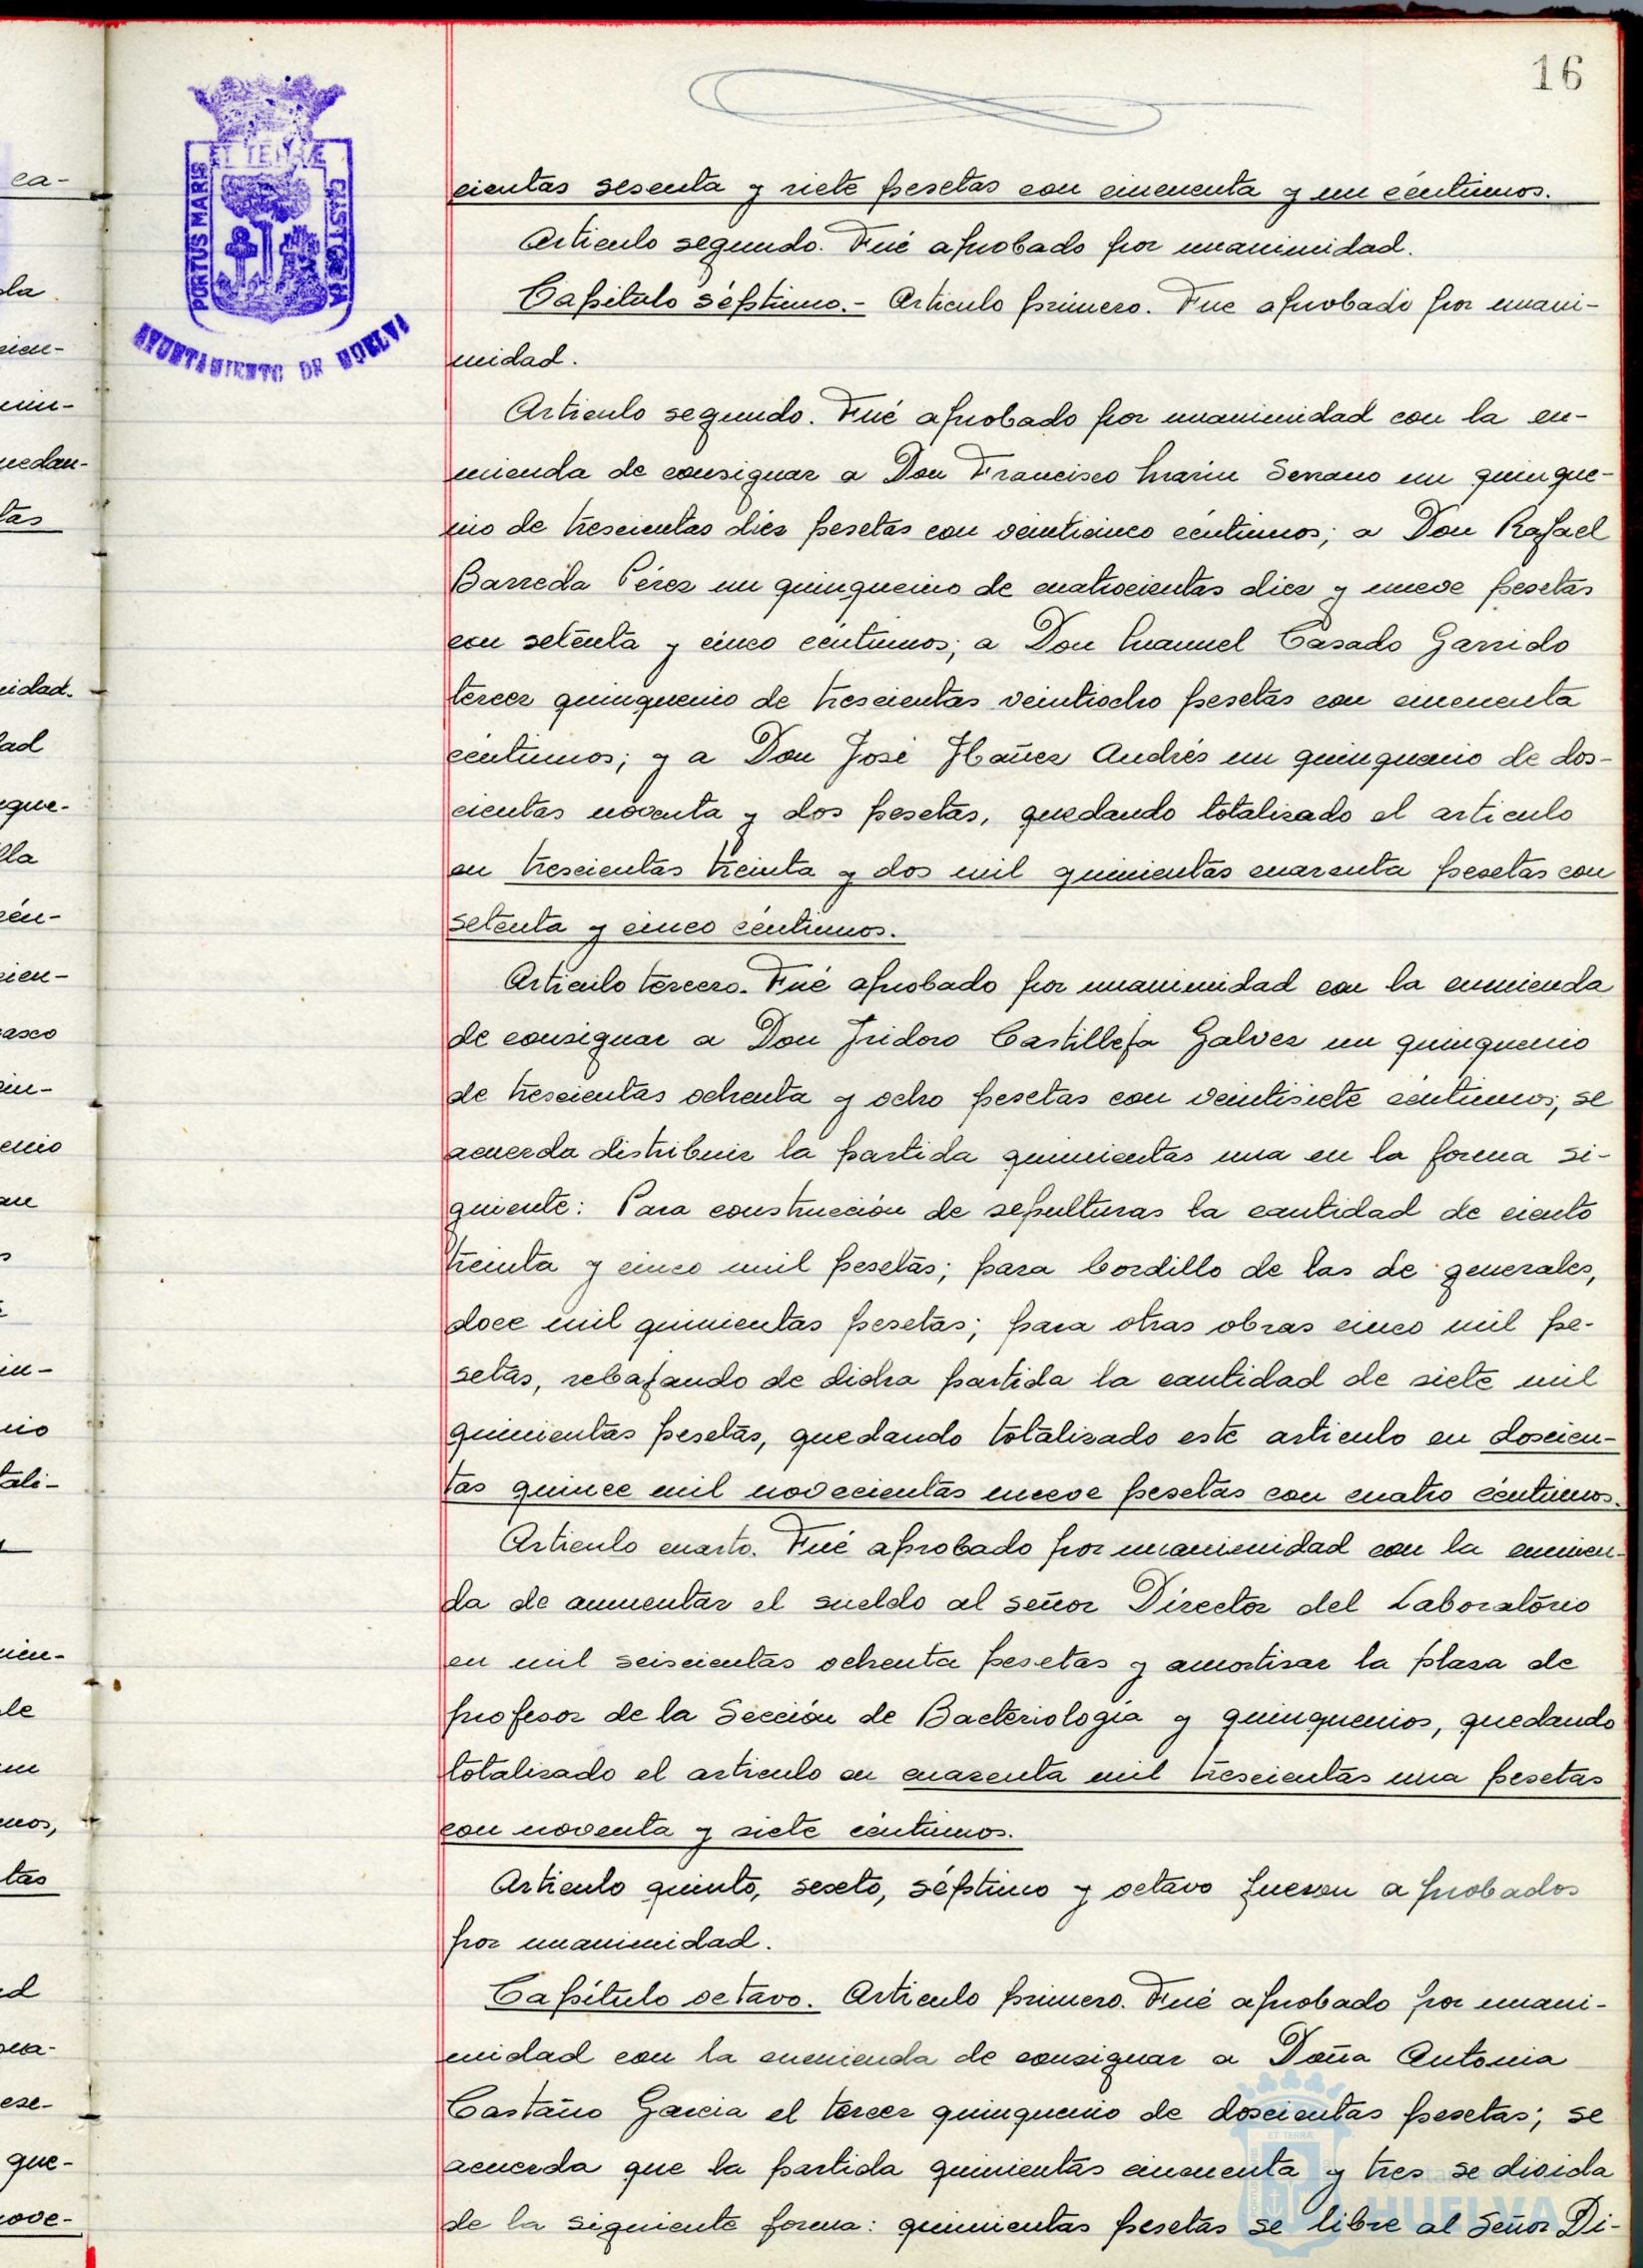 16
PORTUS MARIS
ET TERRÆ
CUSTODIA
AYUNTAMIENTO DE HUELVA
cientas sesenta y siete pesetas con cincuenta y un céntimos.
Articulo segundo. Fué aprobado por unanimidad.
Capitulo séptimo.- Articulo primero. Fue aprobado por unani-
midad.
Articulo segundo. Fué aprobado por unanimidad con la en-
mienda de consignar a Don Francisco Marin Serrano un quinque-
nio de trescientas diez pesetas con veinticinco céntimos; a Don Rafael
Barreda Pérez un quinquenio de cuatrocientas diez y nueve pesetas
con setenta y cinco centimos; a Don Manuel Casado Garrido
tercer quinquenio de trescientas veintiocho pesetas con cincuenta
céntimos; y a Don José Ibañez Andrés un quinquenio de dos-
cientas noventa y dos pesetas, quedando totalizado el articulo
en trescientas treinta y dos mil quinientas cuarenta pesetas con
setenta y cinco céntimos.
Articulo tercero. Fué aprobado por unanimidad con la enmienda
de consignar a Don Isidoro Castilleja Galvez un quinquenio
de trescientas ochenta y ocho pesetas con veintisiete céntimos; se
acuerda distribuir la partida quinientas una en la forma si-
guiente: Para construcción de sepulturas la cantidad de ciento
treinta y cinco mil pesetas; para bordillo de las de generales,
doce mil quinientas pesetas; para otras obras cinco mil pe-
setas, rebajando de dicha partida la cantidad de siete mil
quinientas pesetas, quedando totalizado este articulo en doscien-
tas quince mil novecientas nueve pesetas con cuatro céntimos.
Articulo cuarto. Fué aprobado por unanimidad con la enmien-
da de aumentar el sueldo al señor Director del Laboratorio
en mil seiscientas ochenta pesetas y amortizar la plaza de
profesor de la Sección de Bacteriologia y quinquenios, quedando
totalizado el articulo en cuarenta mil trescientas una pesetas
con noventa y siete céntimos.
Articulo quinto, sexto, séptimo y octavo fueron aprobados
por unanimidad.
Capítulo octavo. Articulo primero. Fué aprobado por unani-
midad con la enmienda de consignar a Doña Antonia
Castaño Garcia el tercer quinquenio de doscientas pesetas; se
acuerda que la partida quinientas cincuenta y tres se divida
de la siguiente forma: quinientas pesetas se libre al Señor Di-
HUELVA